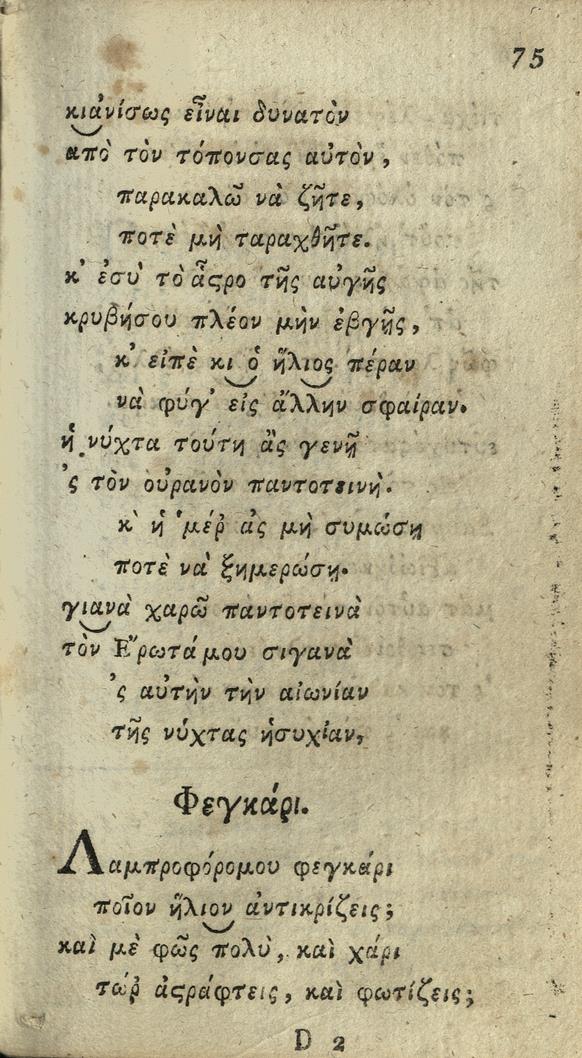 75
κιἀνίσως εἶναι δυνατὸν
ἀπὸ τὸν τόπονσας αὐτὸν,
παρακαλῶ νὰ ζῆτε,
ποτὲ μὴ ταραχθῆτε.
κ' ἐσὺ τὸ ἄϛρο τῆς αὐγῆς
κρυβήσου πλέον μὴν ἐβγῆς,
κ' εἰπὲ κι ὁ ἥλιος πέραν
νὰ φύγ' εἰς ἄλλην σφαίραν.
ἡ νύχτα τούτη ἂς γενῇ
'ς τὸν οὐρανὸν παντοτεινὴ.
κ' ἡ 'μέρ' ἀς μὴ συμώσῃ
ποτὲ νὰ ξημερώσῃ.
γιανὰ χαρῶ παντοτεινὰ
τὸν Ἔρωτάμου σιγανὰ
'ς αὐτὴν τὴν αἰωνίαν
τῆς νύχτας ἡσυχίαν,
Φεγκάρι.
Λαμπροφόρομου φεγκάρι
ποῖον ἥλιον ἀντικρίζεις;
καὶ μὲ φῶς πολὺ, καὶ χάρι
τώρ' ἀϛράφτεις, καὶ φωτίζεις;
D 2